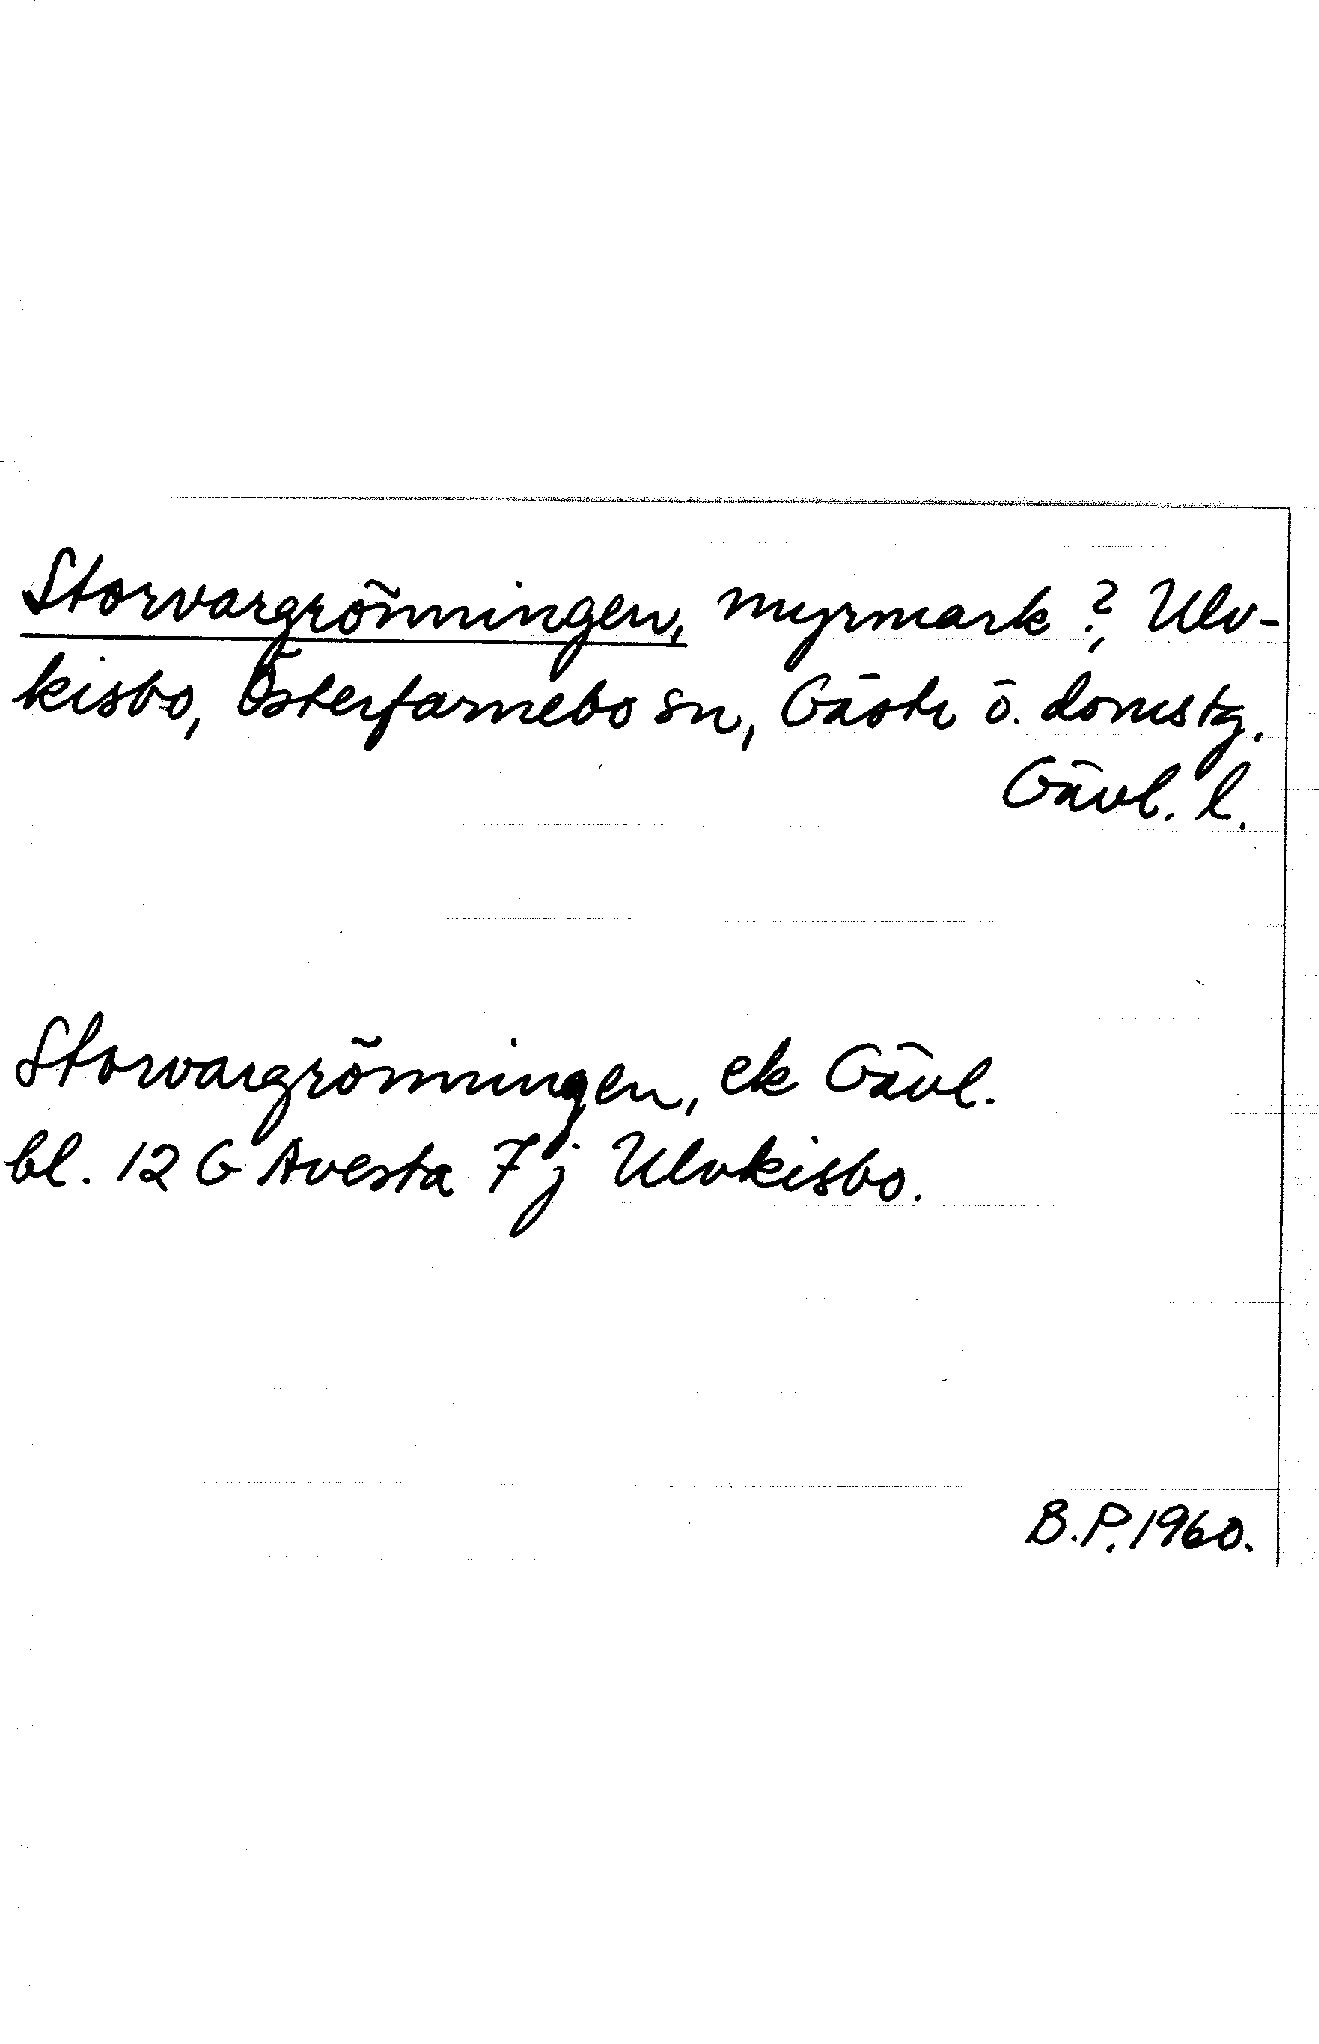 Storvargrönningen, myrmark?, Ulv-
kisbo, Österfarnebo sn, Gästr ö. domstg.
Gävl. l.
Storvargrönningen, ek Gävl.
bl. 12 G Avesta 7 j Ulvkisbo.
B.P. 1960.